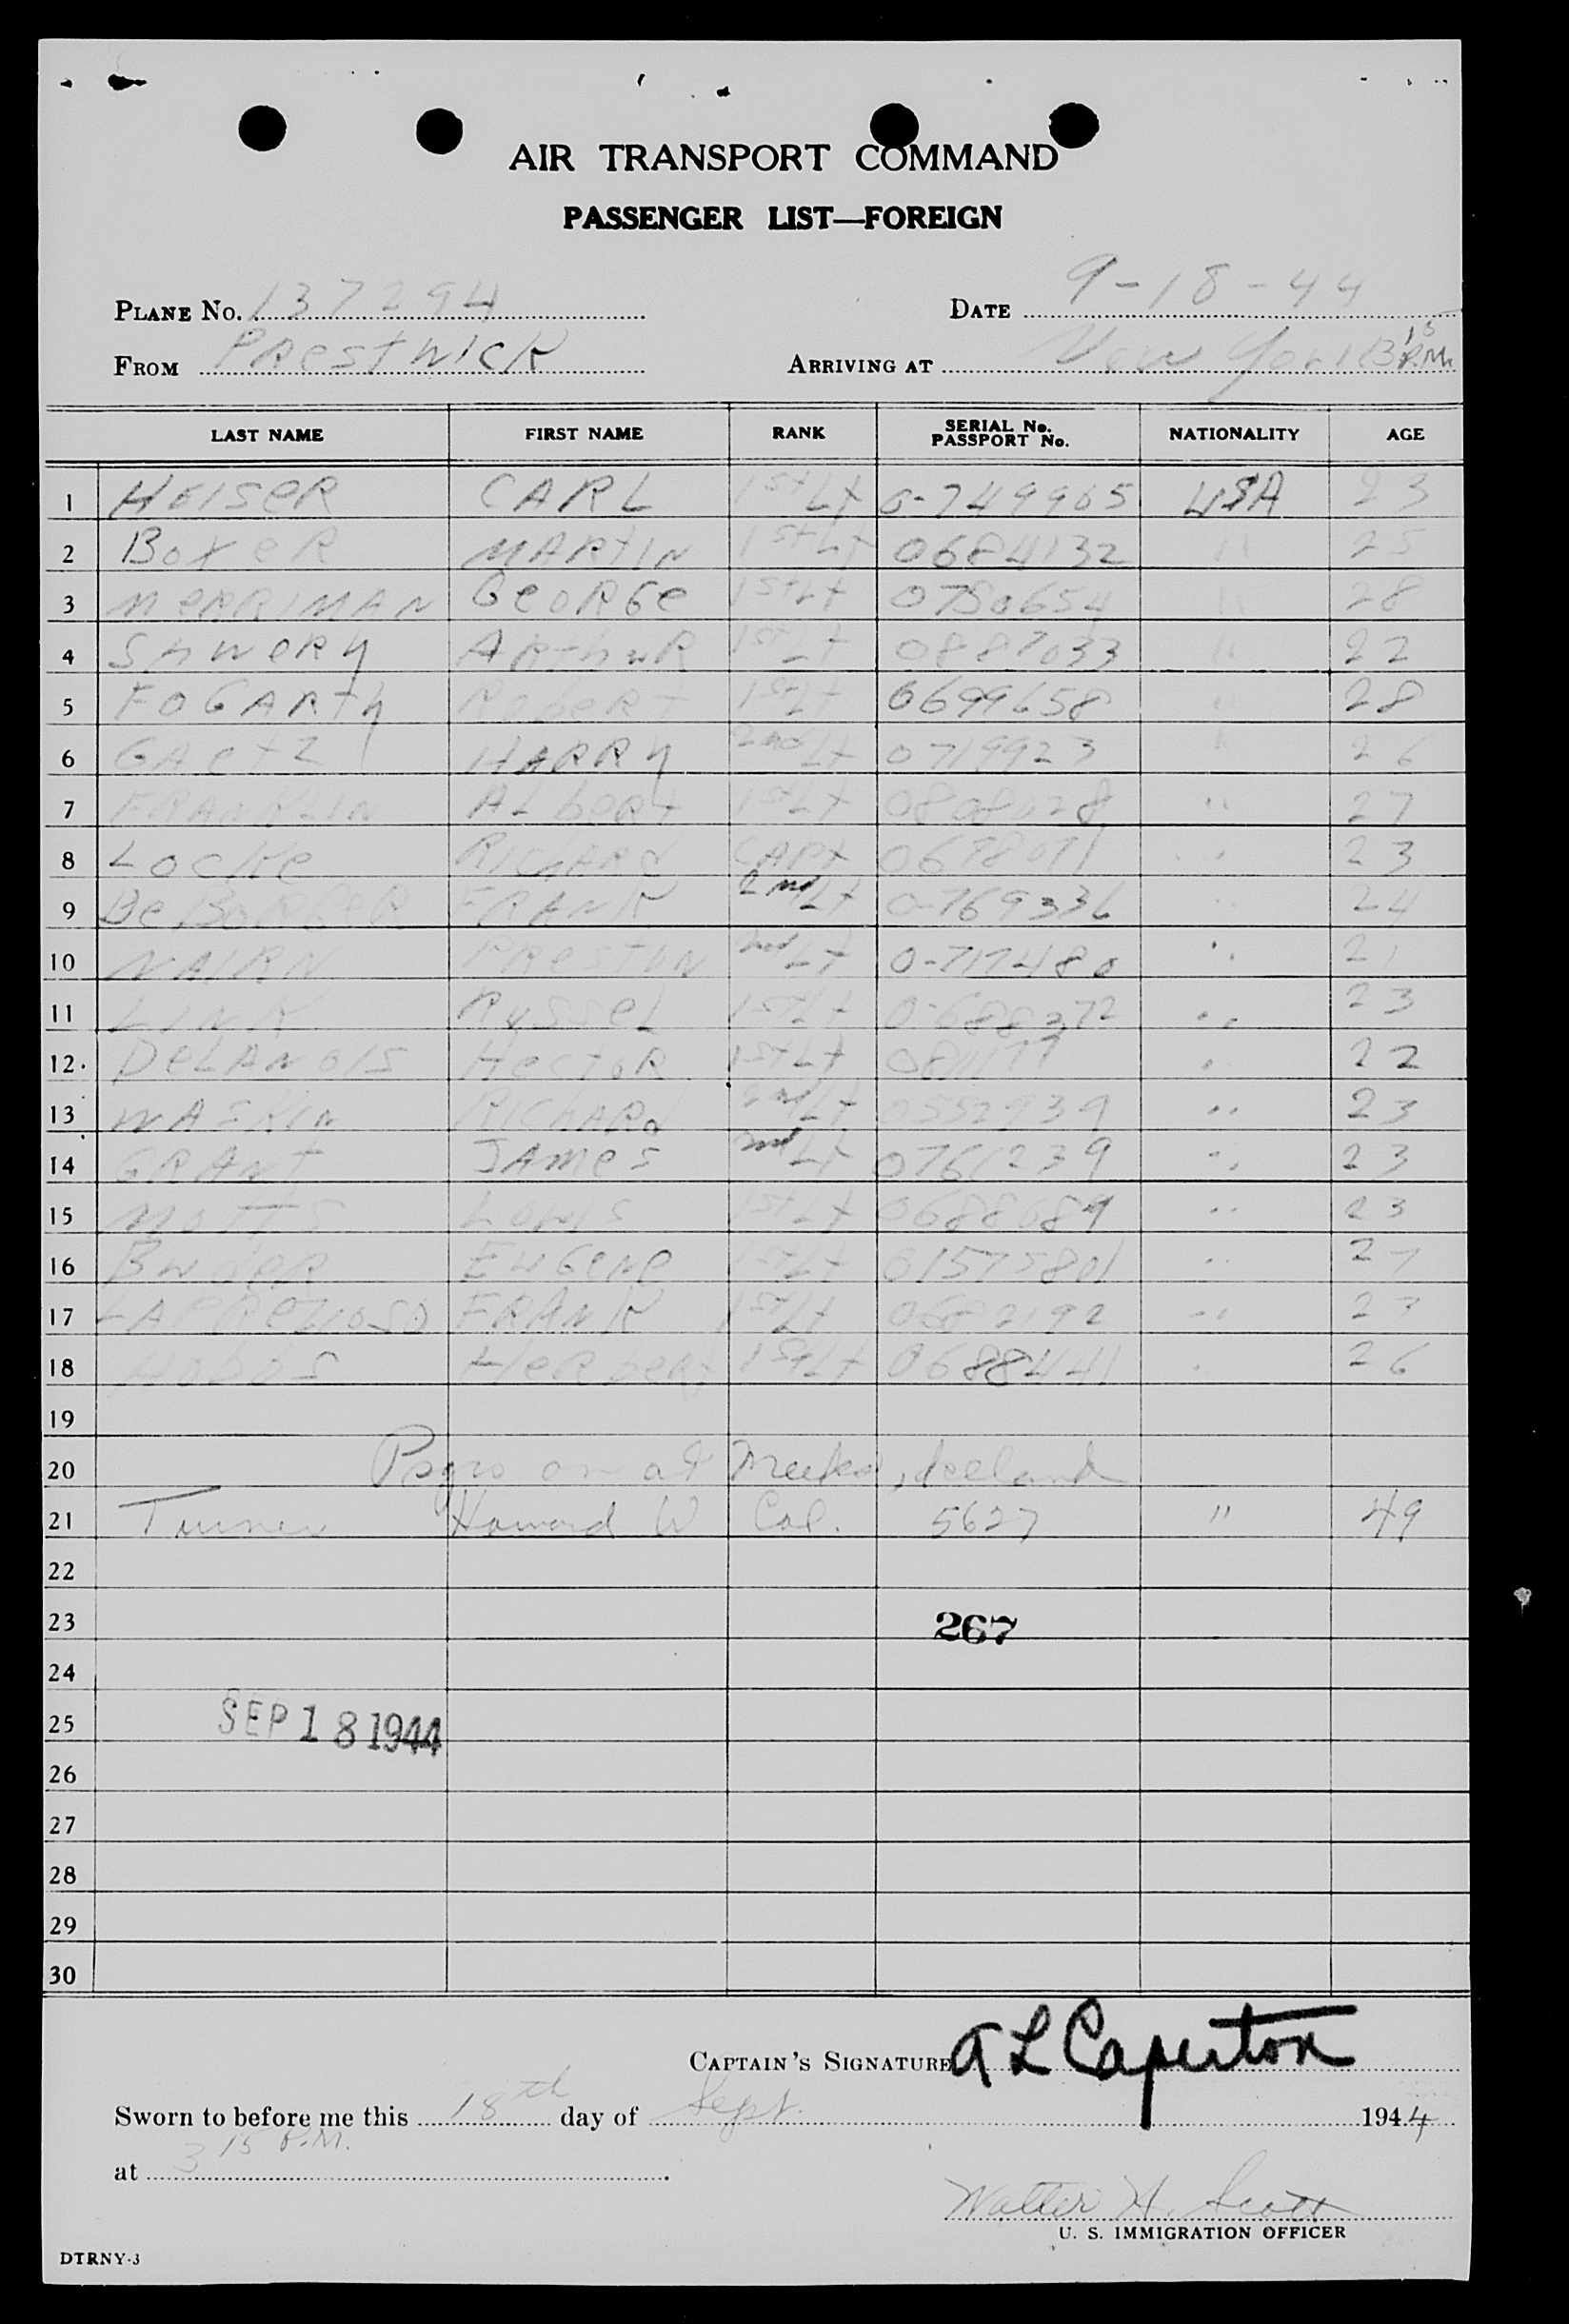 AIR TRANSPORT COMMAND
PASSENGER LIST—FOREIGN
PLANE No. 137294 DATE 9-18-44
FROM Prestwick ARRIVING AT New York 3 15 P.M.
LAST NAME FIRST NAME RANK SERIAL No. PASSPORT No. NATIONALITY AGE
1 HeiseR CARL 1st Lt 0-749965 USA 23
2 BoxeR MARtIN 1st Lt 0684132 " 25
3 MeRRIMAN GeoRGe 1st Lt 0750654 " 28
4 ARthuR 1st Lt 0887033 " 22
5 FOGARty RobeRT 1st Lt 0699658 " 28
6 GAetz HARRy 2nd Lt 0719923 " 26
7 FRANKLIN ALbeRt 1st Lt " 27
8 Locke RICHARd CAPt 23
9 FRANK 2nd Lt 0-769336 " 24
10 NAIRN PResTON 2nd Lt 0-717480 " 21
11 LINK RusseL 1st Lt 0-688372 " 23
12. DeLANOIS HectoR 1st Lt " 22
13 RICHARd 2nd Lt 0552939 " 23
14 GRANT JAMes 2nd Lt 0761239 " 23
15 MOTTS Louis 1st Lt 0688689 " 23
16 EuGeNe 1st Lt 01575801 " 27
17 FRANK 1st Lt 0682192 " 23
18 Hobbs HeRbeRt 1st Lt 0688441 " 26
19
20 Psgrs on at Meeks, Iceland
21 Turner Howard W Col. 5627 " 49
22
23 267
24
25 SEP 18 1944
26
27
28
29
30
CAPTAIN'S SIGNATURE A L Caperton
Sworn to before me this 18th day of Sept. 1944
at 3 15 P.M.
Walter H. Scott
U. S. IMMIGRATION OFFICER
DTRNY-3